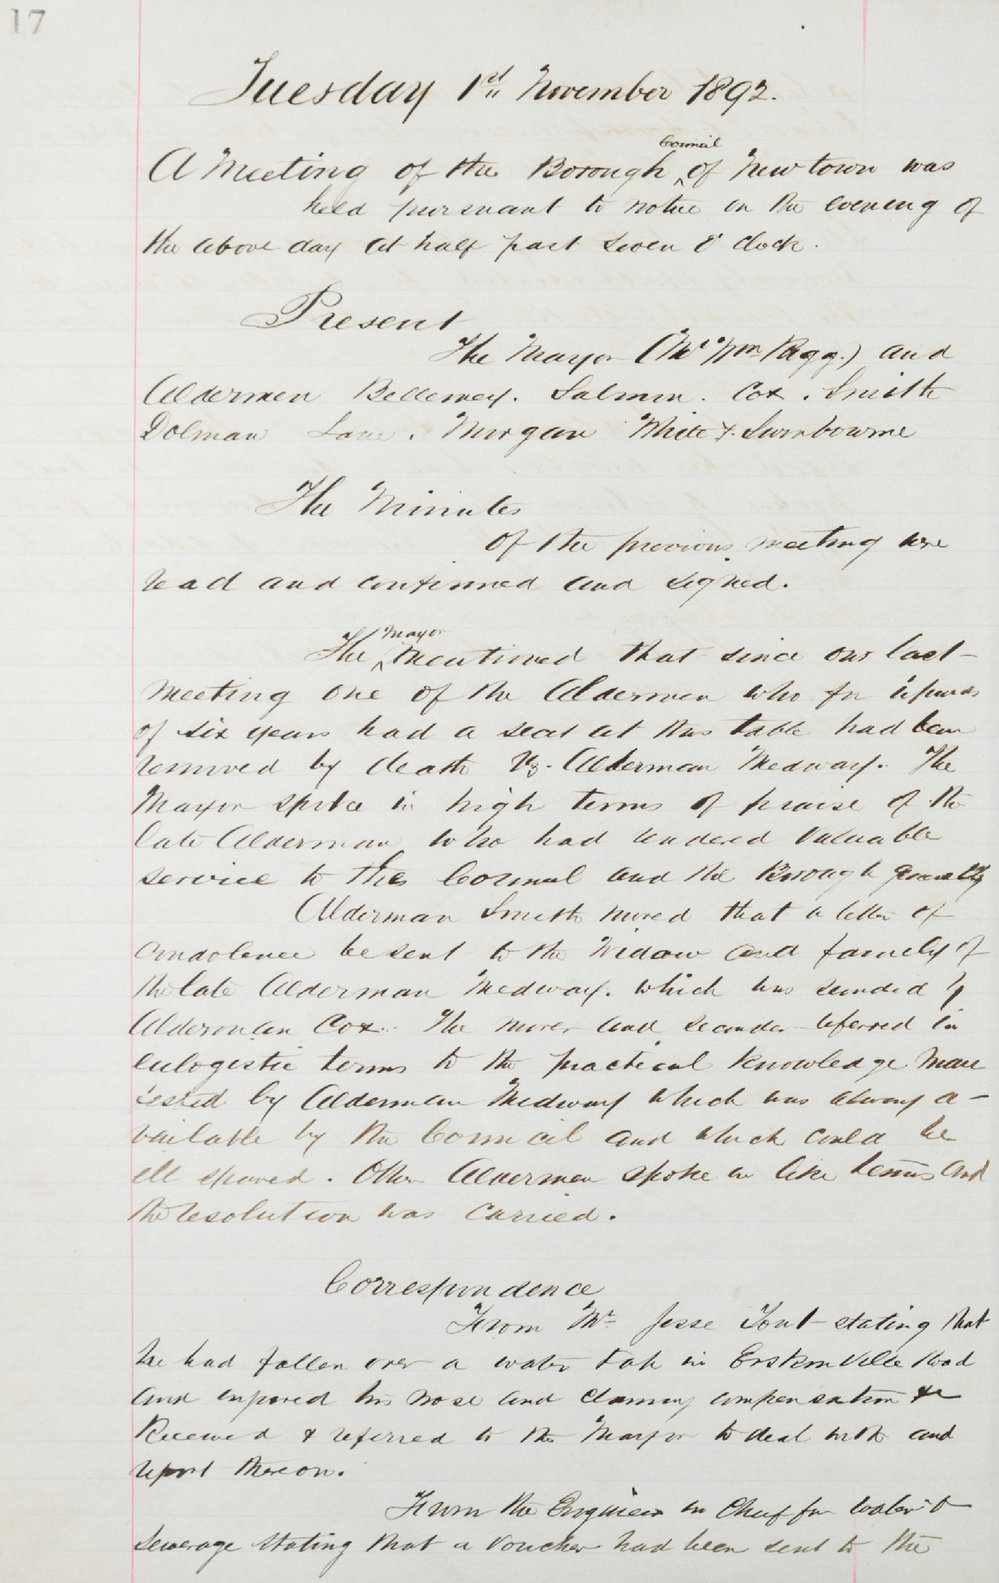 17
Tuesday 1st November 1892.
A Meeting of the Borough Council of Newtown was
held pursuant to notice in the evening of
the above day at half past seven O'clock.
Present
The Mayor (Mr Wm Rigg.) and
Aldermen Bellemey. Salmon. Cox. Smith
Dolman Lane. Morgan White & Swinbourne
The Minutes
of the previous meeting were
read and confirmed and signed.
The Mayor mentioned that since our last
meeting one of the Aldermen who for upwards
of six years had a seat at this table had been
removed by death Vz. Alderman Medway. The
Mayor spoke in high terms of praise of the
late Alderman who had rendered valuable
service to this Council and the Borough generally
Alderman Smith moved that a letter of
condolence be sent to the Widow and family of
the late Alderman Medway. which was seconded by
Alderman Cox. The mover and seconder referred in
eulogistic terms to the practical knowledge
by Alderman Medway which was always a-
vailable by the Council and which could be
ill spared. Other Aldermen spoke in like terms and
the resolution was carried.
Correspondence
From Mr. Jesse stating that
he had fallen over a water tap in Erskinville Road
and injured his nose and claiming compensation &c
Received & referred to the Mayor to deal with and
report thereon.
From the Engineer in Chief for Water &
Sewerage stating that a voucher had been sent to the